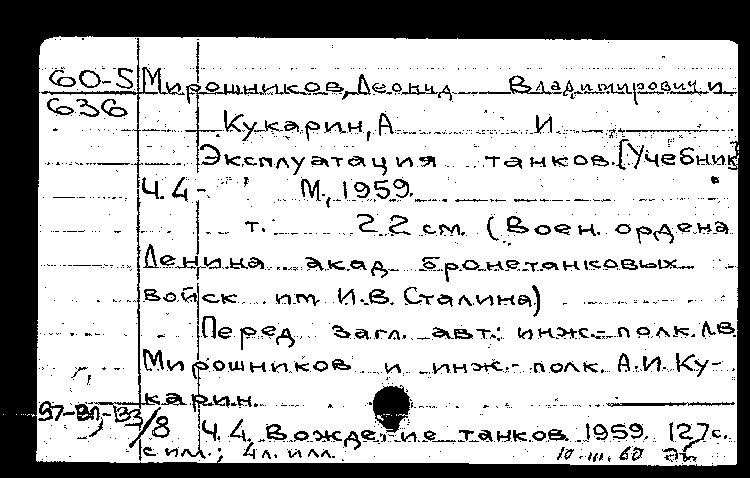 60-5 Мирошников, Леонид Владимирович и
636
Кукарин, А И
Эксплуатация танков. [Учебник]
Ч.4- М., 1959.
т. 22 см. (Воен. ордена
Ленина акад. бронетанковых
войск им И.В. Сталина)
Перед загл. авт.: инж.-полк. Л.В.
Мирошников и инж.- полк. А.И. Ку-
карин.
97-ВЛ-133/8 Ч.4. Вождение танков. 1959. 127с.
с илл.; 4 л. илл. 10.III.60